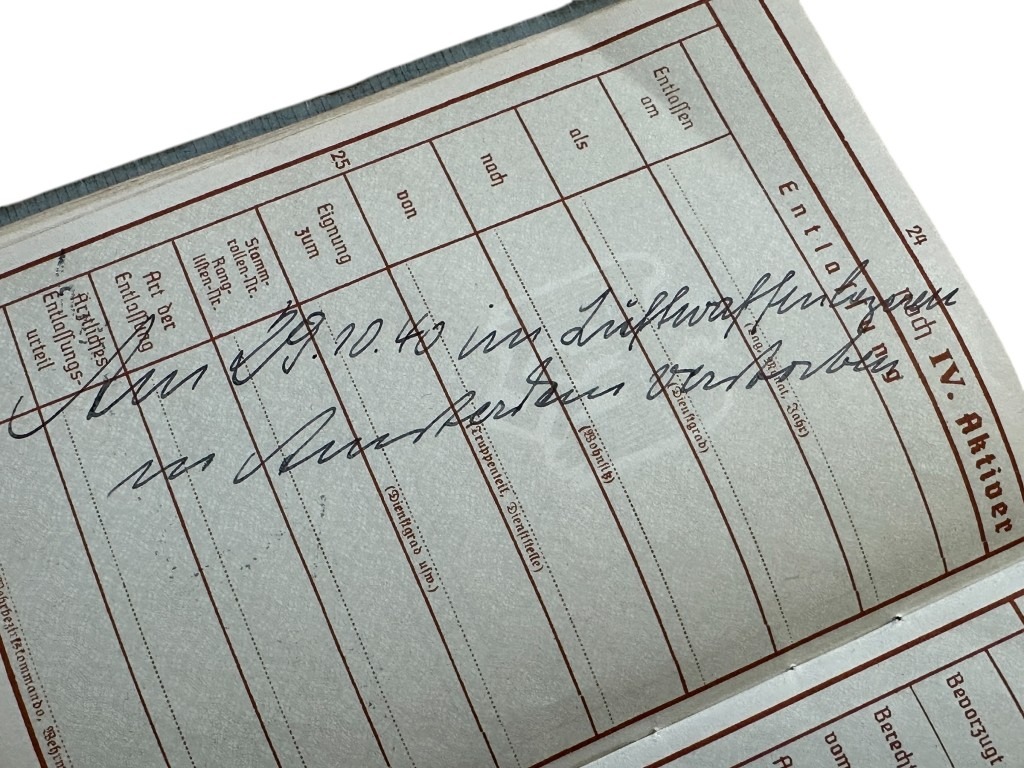 Am 29.10.40 im Luftwaffenlazarett
in Amsterdam verstorben
24
Noch IV. Aktiver
Entlassung
Entlassen
am
(Tag, Monat, Jahr)
als
(Dienstgrad)
nach
(Wohnsitz)
von
(Truppenteil, Dienststelle)
25
Eignung
zum
(Dienstgrad usw.)
Stamm-
rollen-Nr.
Rang-
listen-Nr.
Art der
Entlassung
Ärztliches
Entlassungs-
urteil
Bevorzugt
Berecht
vom